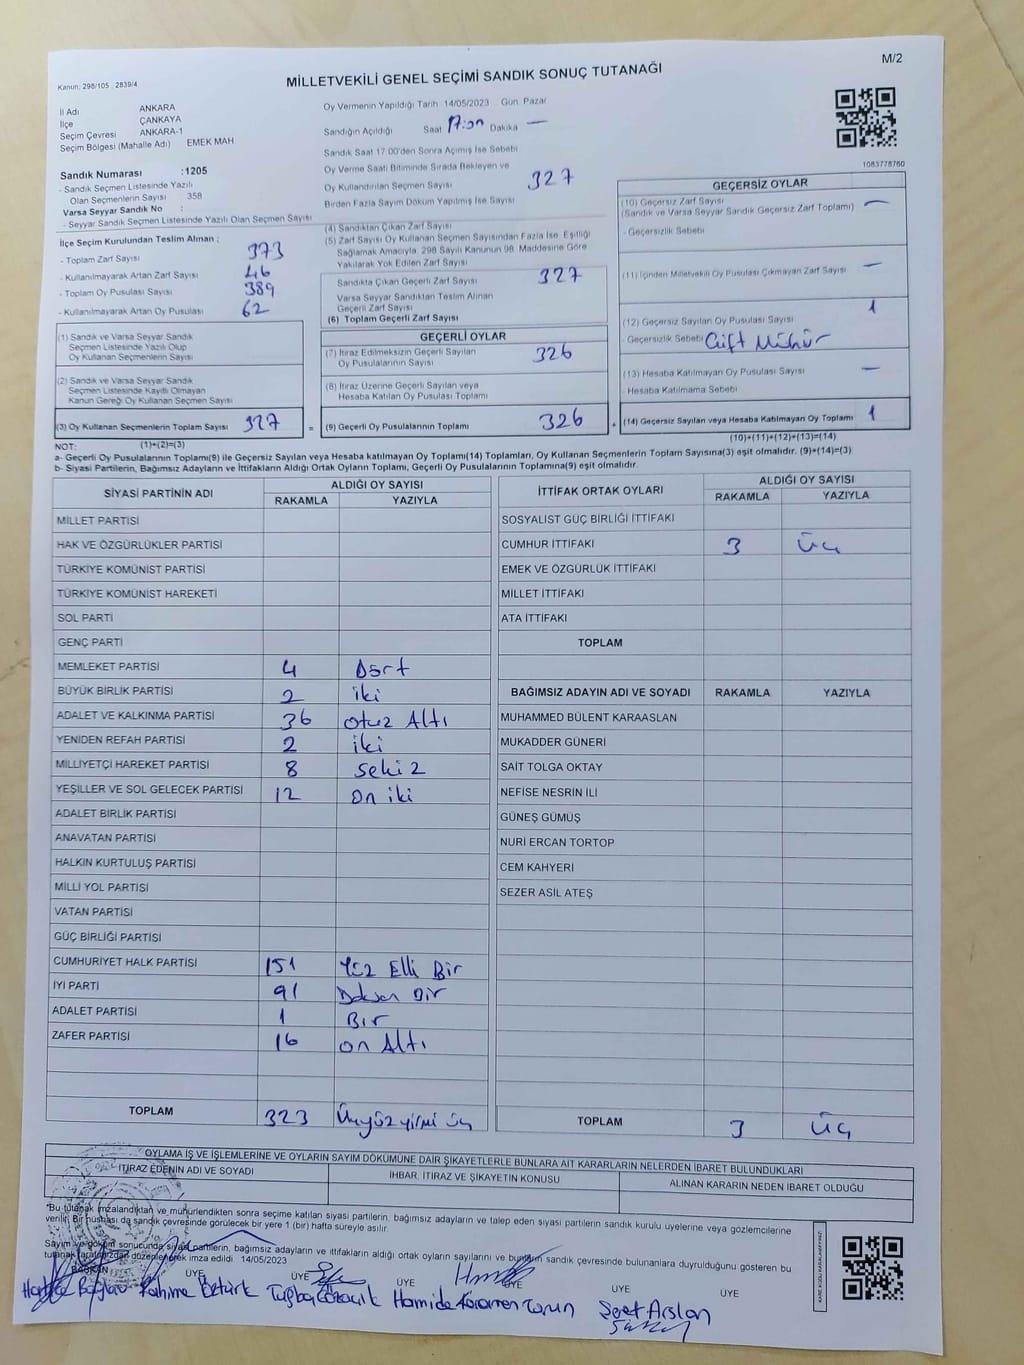 M/2
Kanun: 298/105 , 2839/4
MİLLETVEKİLİ GENEL SEÇİMİ SANDIK SONUÇ TUTANAĞI
İl Adı ANKARA
İlçe ÇANKAYA
Seçim Çevresi ANKARA-1
Seçim Bölgesi (Mahalle Adı) EMEK MAH
Sandık Numarası :1205
- Sandık Seçmen Listesinde Yazılı
Olan Seçmenlerin Sayısı 358
Varsa Seyyar Sandık No :
- Seyyar Sandık Seçmen Listesinde Yazılı Olan Seçmen Sayısı
İlçe Seçim Kurulundan Teslim Alınan ;
- Toplam Zarf Sayısı 373
- Kullanılmayarak Artan Zarf Sayısı 46
- Toplam Oy Pusulası Sayısı 389
- Kullanılmayarak Artan Oy Pusulası 62
(1) Sandık ve Varsa Seyyar Sandık
Seçmen Listesinde Yazılı Olup
Oy Kullanan Seçmenlerin Sayısı
(2) Sandık ve Varsa Seyyar Sandık
Seçmen Listesinde Kayıtlı Olmayan
Kanun Gereği Oy Kullanan Seçmen Sayısı
(3) Oy Kullanan Seçmenlerin Toplam Sayısı 327 =
(1)+(2)=(3)
Oy Vermenin Yapıldığı Tarih 14/05/2023 Gün Pazar
Sandığın Açıldığı Saat 17:00 Dakika —
Sandık Saat 17:00'den Sonra Açılmış İse Sebebi
Oy Verme Saati Bitiminde Sırada Bekleyen ve
Oy Kullandırılan Seçmen Sayısı 327
Birden Fazla Sayım Döküm Yapılmış İse Sayısı
(4) Sandıktan Çıkan Zarf Sayısı
(5) Zarf Sayısı Oy Kullanan Seçmen Sayısından Fazla İse, Eşitliği
Sağlamak Amacıyla, 298 Sayılı Kanunun 98. Maddesine Göre
Yakılarak Yok Edilen Zarf Sayısı
Sandıkta Çıkan Geçerli Zarf Sayısı 327
Varsa Seyyar Sandıktan Teslim Alınan
Geçerli Zarf Sayısı
(6) Toplam Geçerli Zarf Sayısı
GEÇERLİ OYLAR
(7) İtiraz Edilmeksizin Geçerli Sayılan
Oy Pusulalarının Sayısı 326
(8) İtiraz Üzerine Geçerli Sayılan veya
Hesaba Katılan Oy Pusulası Toplamı
(9) Geçerli Oy Pusulalarının Toplamı 326 +
1083778760
GEÇERSİZ OYLAR
(10) Geçersiz Zarf Sayısı —
(Sandık ve Varsa Seyyar Sandık Geçersiz Zarf Toplamı)
- Geçersizlik Sebebi
(11) İçinden Milletvekili Oy Pusulası Çıkmayan Zarf Sayısı —
(12) Geçersiz Sayılan Oy Pusulası Sayısı 1
- Geçersizlik Sebebi Çift Mühür
(13) Hesaba Katılmayan Oy Pusulası Sayısı —
- Hesaba Katılmama Sebebi
(14) Geçersiz Sayılan veya Hesaba Katılmayan Oy Toplamı 1
(10)+(11)+(12)+(13)=(14)
NOT:
a- Geçerli Oy Pusulalarının Toplamı(9) ile Geçersiz Sayılan veya Hesaba katılmayan Oy Toplamı(14) Toplamları, Oy Kullanan Seçmenlerin Toplam Sayısına(3) eşit olmalıdır. (9)+(14)=(3)
b- Siyasi Partilerin, Bağımsız Adayların ve İttifakların Aldığı Ortak Oyların Toplamı, Geçerli Oy Pusulalarının Toplamına(9) eşit olmalıdır.
SİYASİ PARTİNİN ADI ALDIĞI OY SAYISI
RAKAMLA YAZIYLA
MİLLET PARTİSİ
HAK VE ÖZGÜRLÜKLER PARTİSİ
TÜRKİYE KOMÜNİST PARTİSİ
TÜRKİYE KOMÜNİST HAREKETİ
SOL PARTİ
GENÇ PARTİ
MEMLEKET PARTİSİ 4 Dört
BÜYÜK BİRLİK PARTİSİ 2 iki
ADALET VE KALKINMA PARTİSİ 36 otuz Altı
YENİDEN REFAH PARTİSİ 2 iki
MİLLİYETÇİ HAREKET PARTİSİ 8 sekiz
YEŞİLLER VE SOL GELECEK PARTİSİ 12 on iki
ADALET BİRLİK PARTİSİ
ANAVATAN PARTİSİ
HALKIN KURTULUŞ PARTİSİ
MİLLİ YOL PARTİSİ
VATAN PARTİSİ
GÜÇ BİRLİĞİ PARTİSİ
CUMHURİYET HALK PARTİSİ 151 Yüz Elli Bir
İYİ PARTİ 91 Doksan Bir
ADALET PARTİSİ 1 Bir
ZAFER PARTİSİ 16 on Altı
TOPLAM 323 Üçyüz yirmi üç
İTTİFAK ORTAK OYLARI ALDIĞI OY SAYISI
RAKAMLA YAZIYLA
SOSYALİST GÜÇ BİRLİĞİ İTTİFAKI
CUMHUR İTTİFAKI 3 Üç
EMEK VE ÖZGÜRLÜK İTTİFAKI
MİLLET İTTİFAKI
ATA İTTİFAKI
TOPLAM
BAĞIMSIZ ADAYIN ADI VE SOYADI RAKAMLA YAZIYLA
MUHAMMED BÜLENT KARAASLAN
MUKADDER GÜNERİ
SAİT TOLGA OKTAY
NEFİSE NESRİN İLİ
GÜNEŞ GÜMÜŞ
NURİ ERCAN TORTOP
CEM KAHYERİ
SEZER ASIL ATEŞ
TOPLAM 3 Üç
OYLAMA İŞ VE İŞLEMLERİNE VE OYLARIN SAYIM DÖKÜMÜNE DAİR ŞİKAYETLERLE BUNLARA AİT KARARLARIN NELERDEN İBARET BULUNDUKLARI
İTİRAZ EDENİN ADI VE SOYADI İHBAR, İTİRAZ VE ŞİKAYETİN KONUSU ALINAN KARARIN NEDEN İBARET OLDUĞU
"Bu tutanak imzalandıktan ve mühürlendikten sonra seçime katılan siyasi partilerin, bağımsız adayların ve talep eden siyasi partilerin sandık kurulu üyelerine veya gözlemcilerine
verilir. Bir nüshası da sandık çevresinde görülecek bir yere 1 (bir) hafta süreyle asılır.
Sayım ve döküm sonucunda siyasi partilerin, bağımsız adayların ve ittifakların aldığı ortak oyların sayılarını ve bunların sandık çevresinde bulunanlara duyrulduğunu gösteren bu
tutanak tarafımızdan düzenlenerek imza edildi. 14/05/2023
BAŞKAN ÜYE ÜYE ÜYE ÜYE ÜYE ÜYE
Rahime Öztürk Tuğba Hamide Karamen Torun Arslan